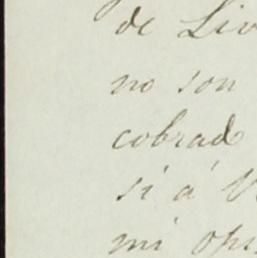 de Liv
no son
cobrad
si á V
mi opi